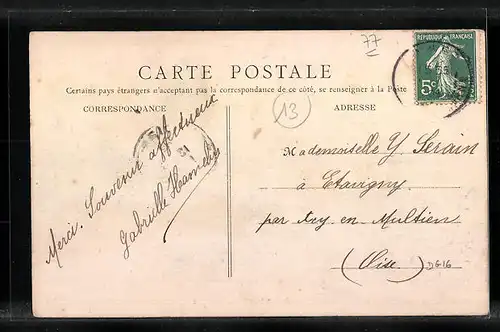 77
RÉPUBLIQUE FRANÇAISE
5c
CARTE POSTALE
Certains pays étrangers n'acceptant pas la correspondance de ce côté, se renseigner à la Poste
CORRESPONDANCE
13
ADRESSE
Merci. Souvenir affectueux
Gabrielle Hamelin
Mademoiselle Y Serain
à Etavigny
par Acy en Multien
(Oise)
DG16